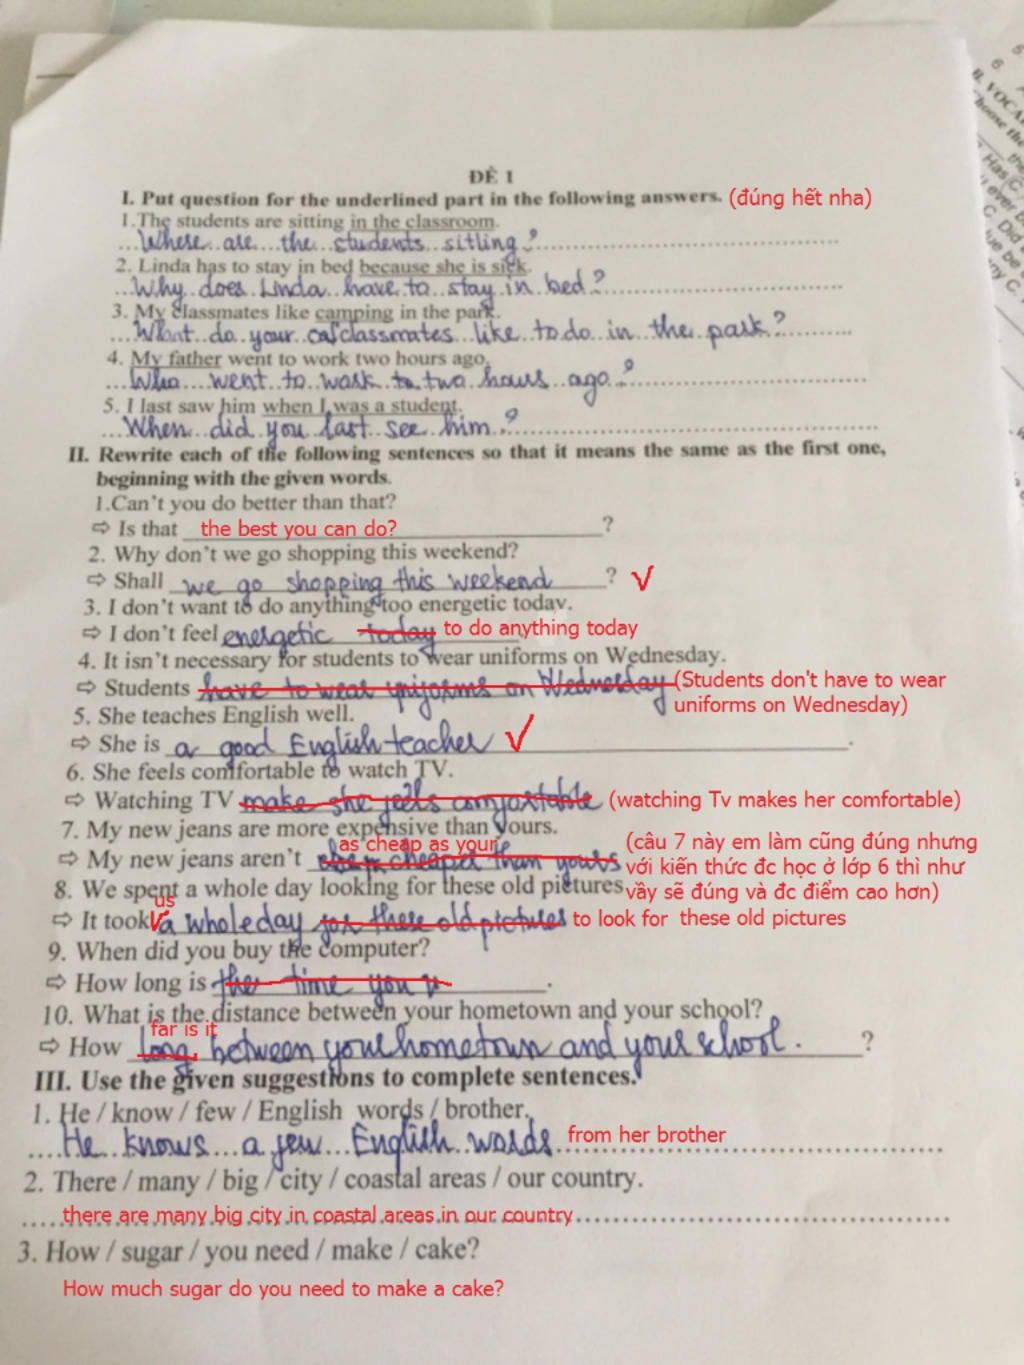 ĐỀ 1
I. Put question for the underlined part in the following answers. (đúng hết nha)
1.The students are sitting in the classroom.
Where are the students sitling?
2. Linda has to stay in bed because she is sick.
Why does Linda have to stay in bed?
3. My classmates like camping in the park.
What do your classmates like to do in the park?
4. My father went to work two hours ago.
Who went to work two hours ago?
5. I last saw him when I was a student.
When did you last see him?
II. Rewrite each of the following sentences so that it means the same as the first one,
beginning with the given words.
1.Can't you do better than that?
⇨ Is that the best you can do? ?
2. Why don't we go shopping this weekend?
⇨ Shall we go shopping this weekend ? √
3. I don't want to do anything too energetic today.
⇨ I don't feel energetic today to do anything today
4. It isn't necessary for students to wear uniforms on Wednesday.
⇨ Students have to wear uniforms on Wednesday (Students don't have to wear
uniforms on Wednesday)
5. She teaches English well.
⇨ She is a good English teacher √ .
6. She feels comfortable to watch TV.
⇨ Watching TV make she feels comfortable (watching Tv makes her comfortable)
7. My new jeans are more expensive than yours.
as cheap as your (câu 7 này em làm cũng đúng nhưng
⇨ My new jeans aren't cheaper than yours với kiến thức đc học ở lớp 6 thì như
8. We spent a whole day looking for these old pictures vầy sẽ đúng và đc điểm cao hơn)
us
⇨ It took a whole day for these old pictures to look for these old pictures
9. When did you buy the computer?
⇨ How long is the time you .
10. What is the distance between your hometown and your school?
far is it
⇨ How long between your hometown and your school. ?
III. Use the given suggestions to complete sentences.
1. He / know / few / English words / brother.
He knows a few English words from her brother
2. There / many / big / city / coastal areas / our country.
there are many big city in coastal areas in our country
3. How / sugar / you need / make / cake?
How much sugar do you need to make a cake?